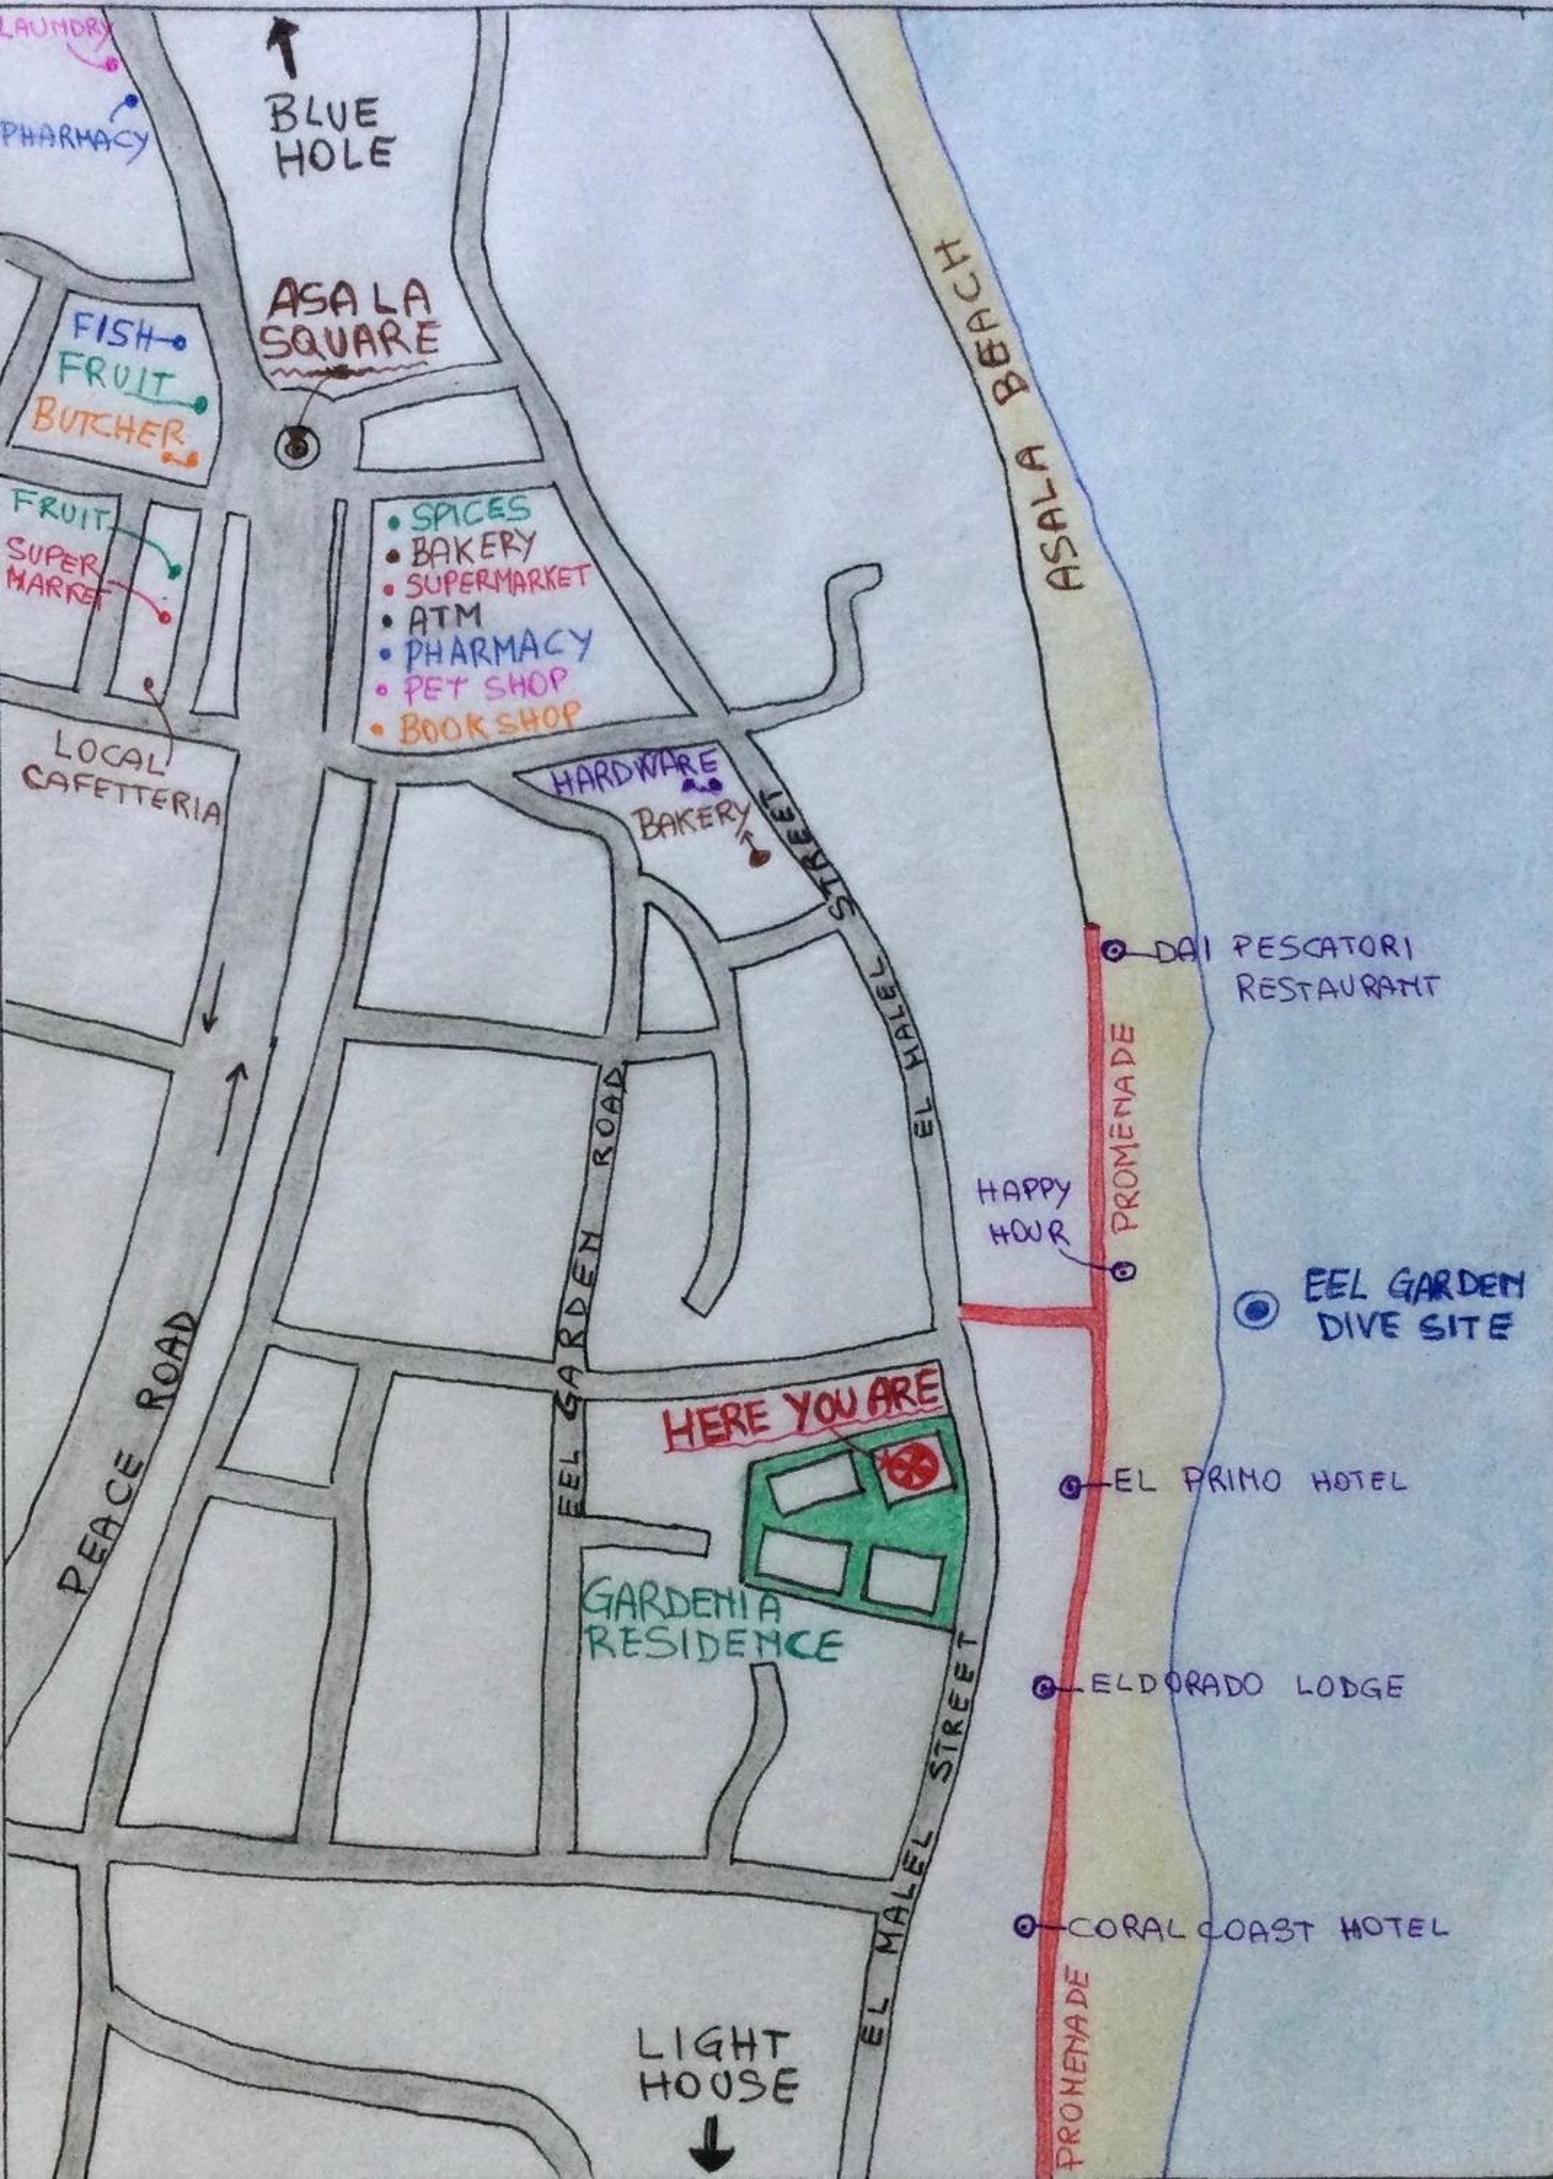 LAUNDRY
PHARMACY
BLUE
HOLE
ASALA
SQUARE
FISH
FRUIT
BUTCHER
FRUIT
SUPER
MARKET
LOCAL
CAFETTERIA
SPICES
BAKERY
SUPERMARKET
ATM
PHARMACY
PET SHOP
BOOK SHOP
HARDWARE
BAKERY
ASALA BEACH
ASALA
EL MALEL STREET
DAI PESCATORI
RESTAURANT
PROMENADE
HAPPY
HOUR
EEL GARDEN
DIVE SITE
EEL GARDEN ROAD
PEACE ROAD
HERE YOU ARE
EL PRIMO HOTEL
GARDENIA
RESIDENCE
ELDORADO LODGE
EL MALEL STREET
CORAL COAST HOTEL
PROMENADE
LIGHT
HOUSE